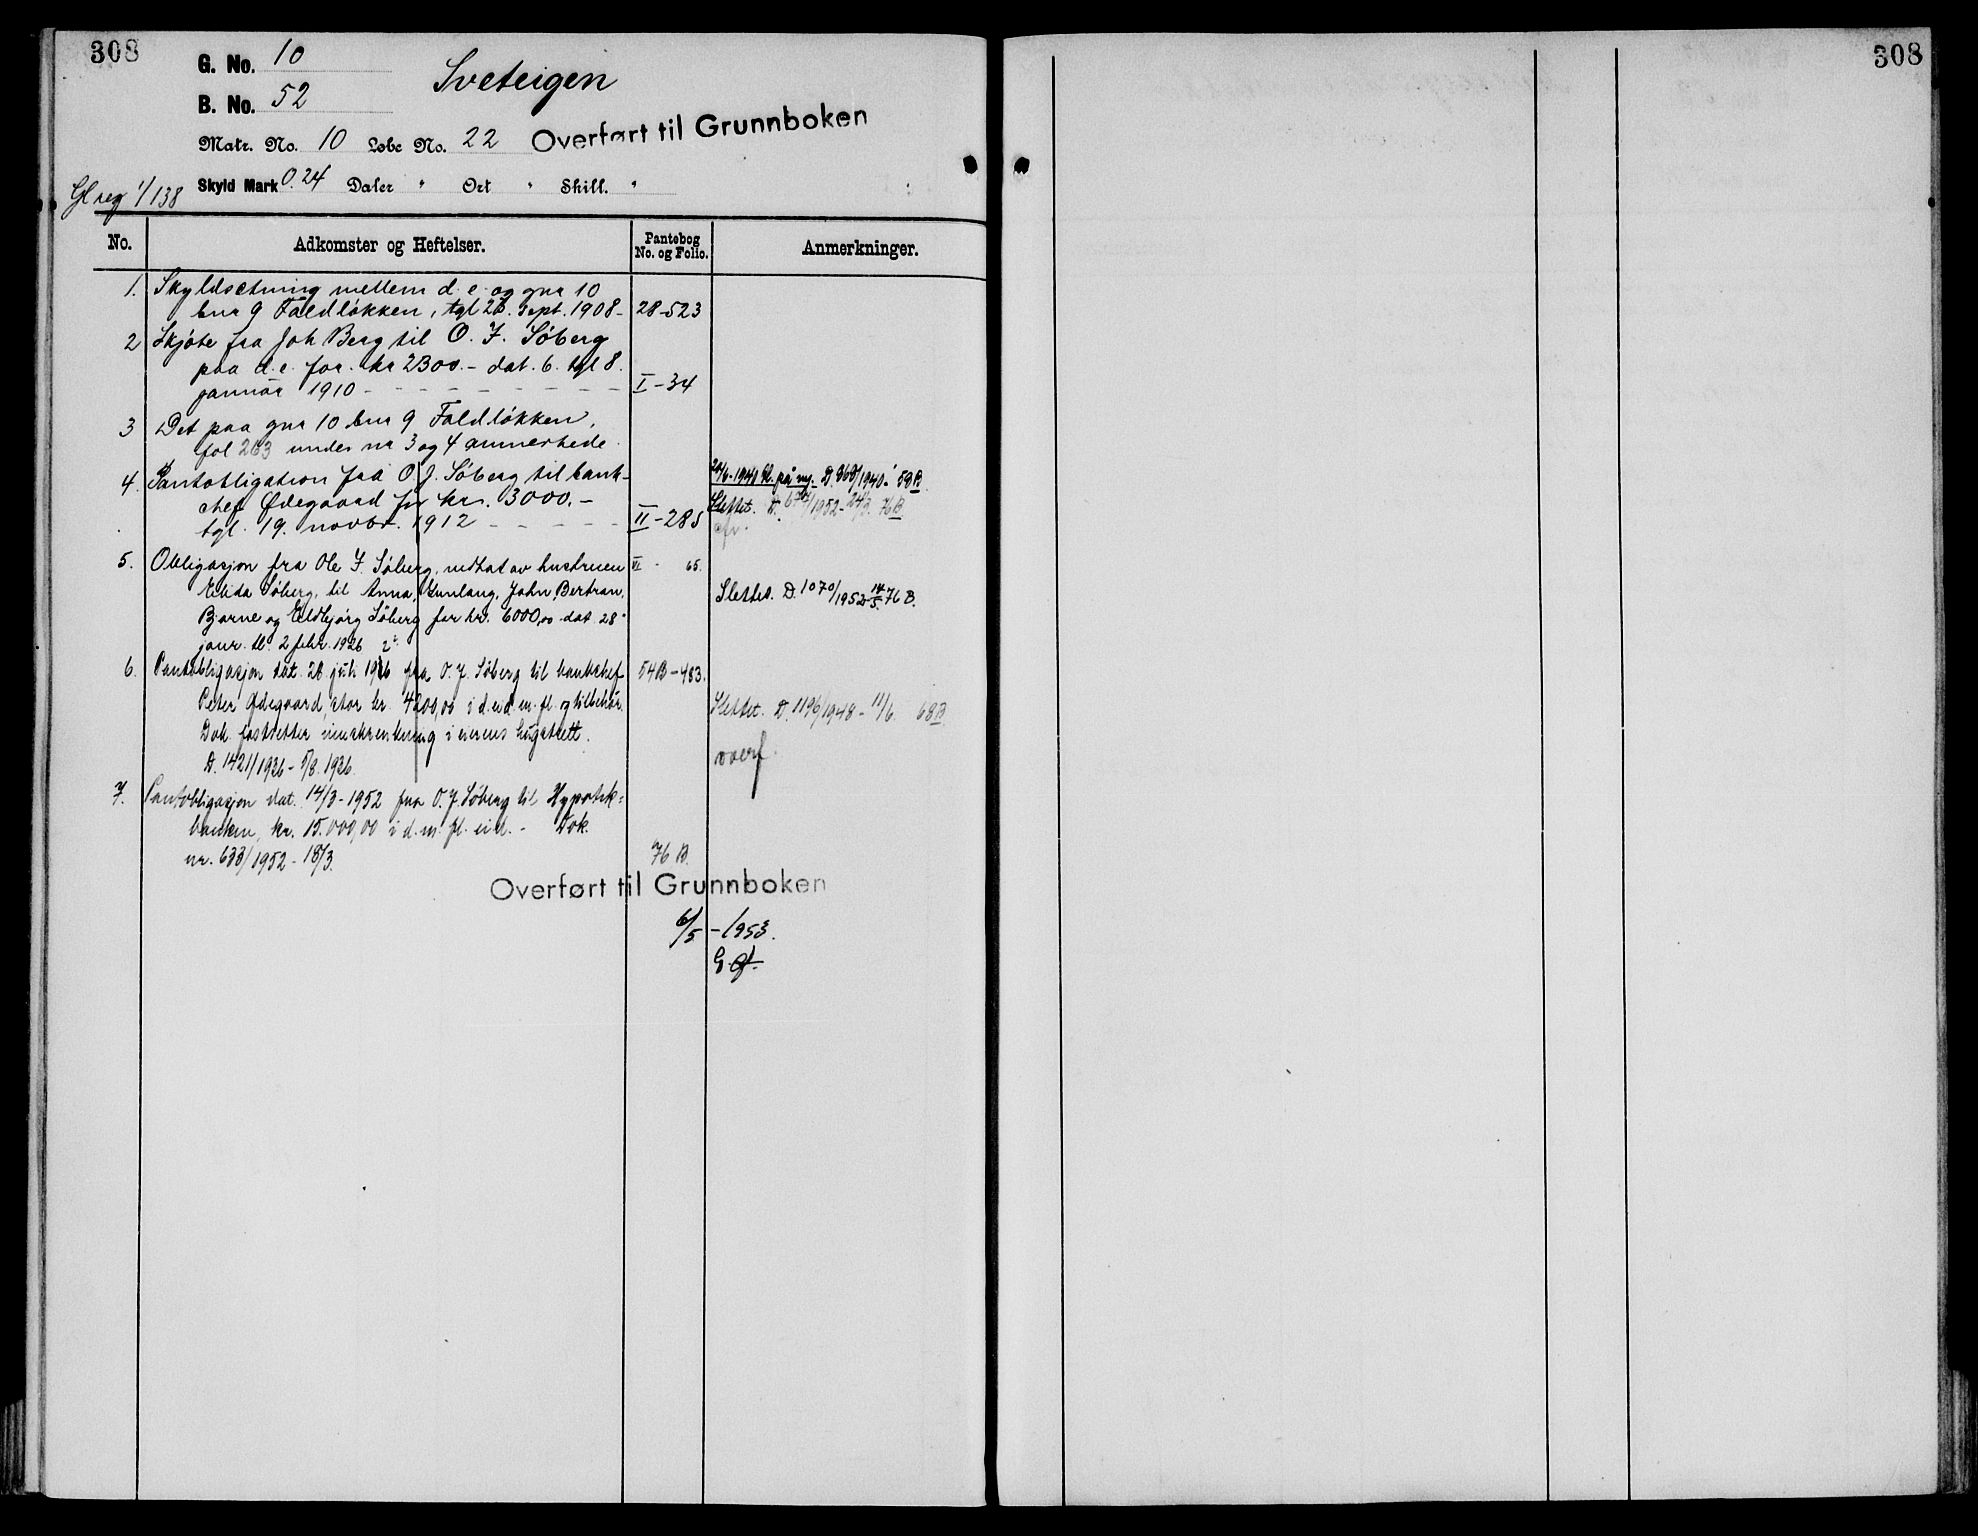 308
G. No. 10
Sveteigen
B. No. 52
Matr. No. 10 Løbe No. 22 Overført til Grunnboken
Gl reg 1/138
Skyld Mark 0.24 Daler " Ort " Skill. "
No. Adkomster og Heftelser. Pantebog No. og Folio. Anmerkninger.
1. Skyldsetning mellem d. e. og gnr 10
bnr 9 Faldløkken, tgl 26. sept. 1908 - 28-523
2 Skjøte fra Joh Berg til O. J. Søberg
paa d. e. for kr 2300.- dat. 6. tgl 8.
januar 1910 - I-34
3 Det paa gnr 10 bnr 9 Faldløkken,
fol 263 under nr 3 og 4 anmerkede
4. Pantobligation fra O. J. Søberg til bank-
chef Ødegaard for kr. 3000.-
tgl. 19. novbr. 1912 - II-285
/6-1940 tl. på ny. D. /1940- 59 B.
Slettet. D. /1952- 24/3. 76 B.
5. Obligasjon fra Ole J. Søberg, medtat av hustruen VI - 65.
Elida Søberg, til Anna, Gunlaug, John, Bertran,
Bjarne og Eldbjørg Søberg for kr. 6000,00 dat 28
janr. tl. 2 febr. 1926
Slettes. D. 1070/1952- 14/5- 76 B.
6. Pantobligasjon dat. 28 juli 1936 fra O. J. Søberg til banksjef 54B-483.
Peter Ødegaard, stor kr. 4200,00 i d. eid. m. fl. og tilbehør.
Dok fastsetter innskrenkning i eierens husrett.
D. 1421/1936 - 1/8. 1936.
Slettet. D. 1196/1948 - 11/6. 68 B.
overf.
7. Pantobligasjon dat. 14/3-1952 fra O. J. Søberg til Hypotek-
banken, kr. 15.000,00 i d. m. fl. eid. - Dok.
nr. 633/1952 - 18/3. 76 B.
Overført til Grunnboken
6/5 -1953.
308